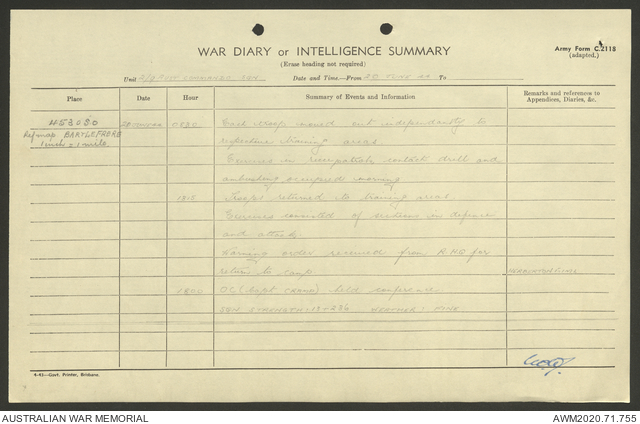 Army Form C.2118
(adapted.)
WAR DIARY or INTELLIGENCE SUMMARY
(Erase heading not required)
Unit Date and Time—From 28 JUNE 44 To
Place Date Hour Summary of Events and Information Remarks and references to Appendices, Diaries, &c.
458080
Ref map BARTLEFRERE
1 inch = 1 mile
0830 Each troop moved out independently to
respective training areas.
Exercises in recce patrols contact drill and
ambushing occupied morning
1315 Troops returned to training areas.
Exercises consisted of sections in defence
and attack.
Warning order received from R.H.Q for
return to camp.
OC (Capt ) held conference
SQN STRENGTH 13 + 236 WEATHER: FINE
4-43—Govt. Printer, Brisbane.
AUSTRALIAN WAR MEMORIAL
AWM2020.71.755